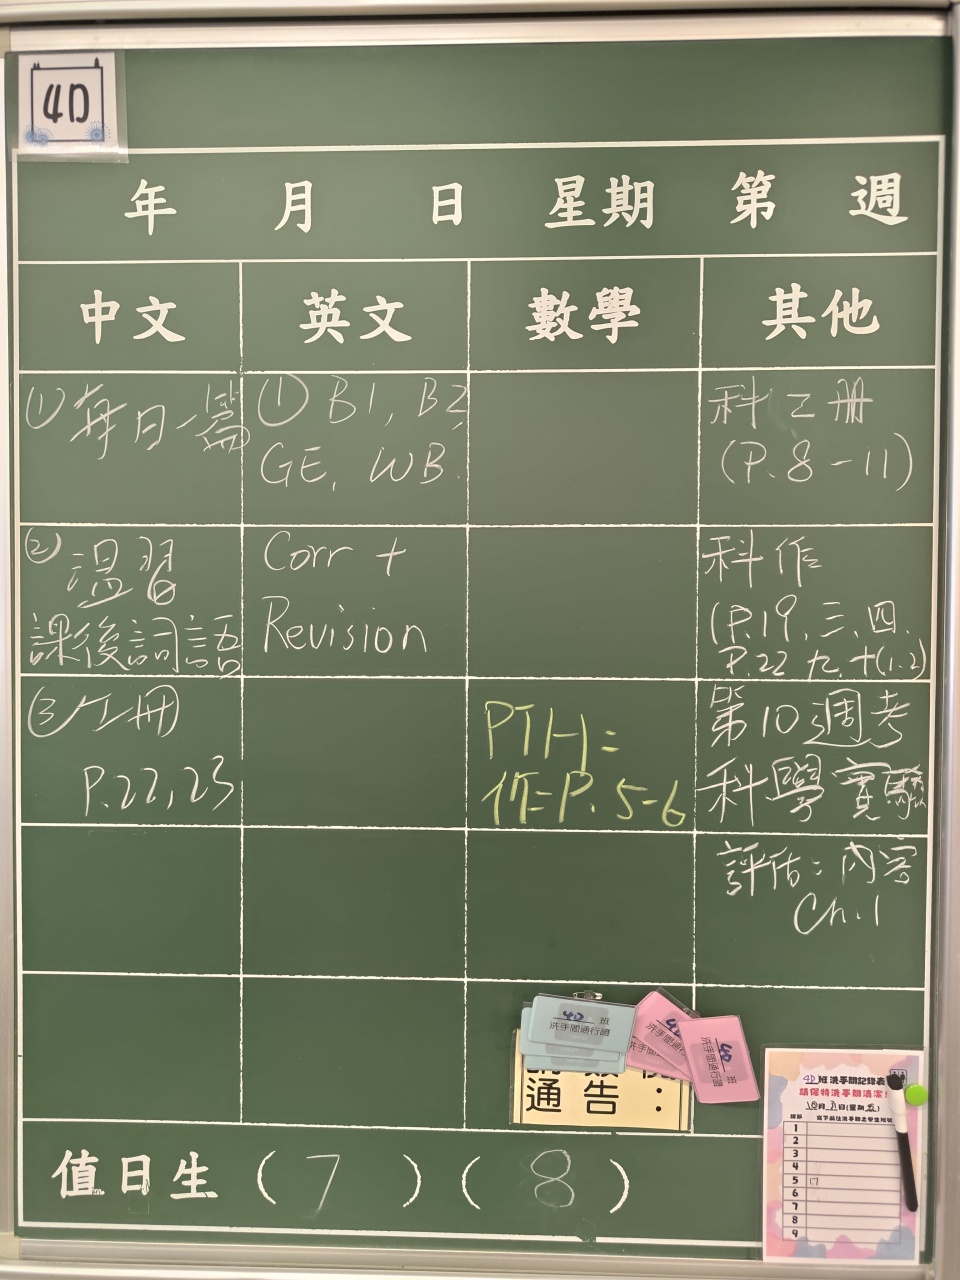 4D
年 月 日 星期 第 週
中文 英文 數學 其他
① 每日一篇
② 溫習
課後詞語
③ 工冊
P.22, 23
① B1, B2,
GE, WB.
Corr +
Revision
PTH=
作=P. 5-6
科工冊
(P. 8-11)
科作
(P.19, 三、四,
P.22 九, 十(1.2)
第10週考
科學實驗
評估: 內容
Ch.1
4D 班
洗手間通行證
洗手間通行證
班
洗手間通行證
通告:
4D班洗手間記錄表
請保持洗手間清潔!
10月31日(星期五)
1
2
3
4
5 17
6
7
8
9
值日生 (7) (8)